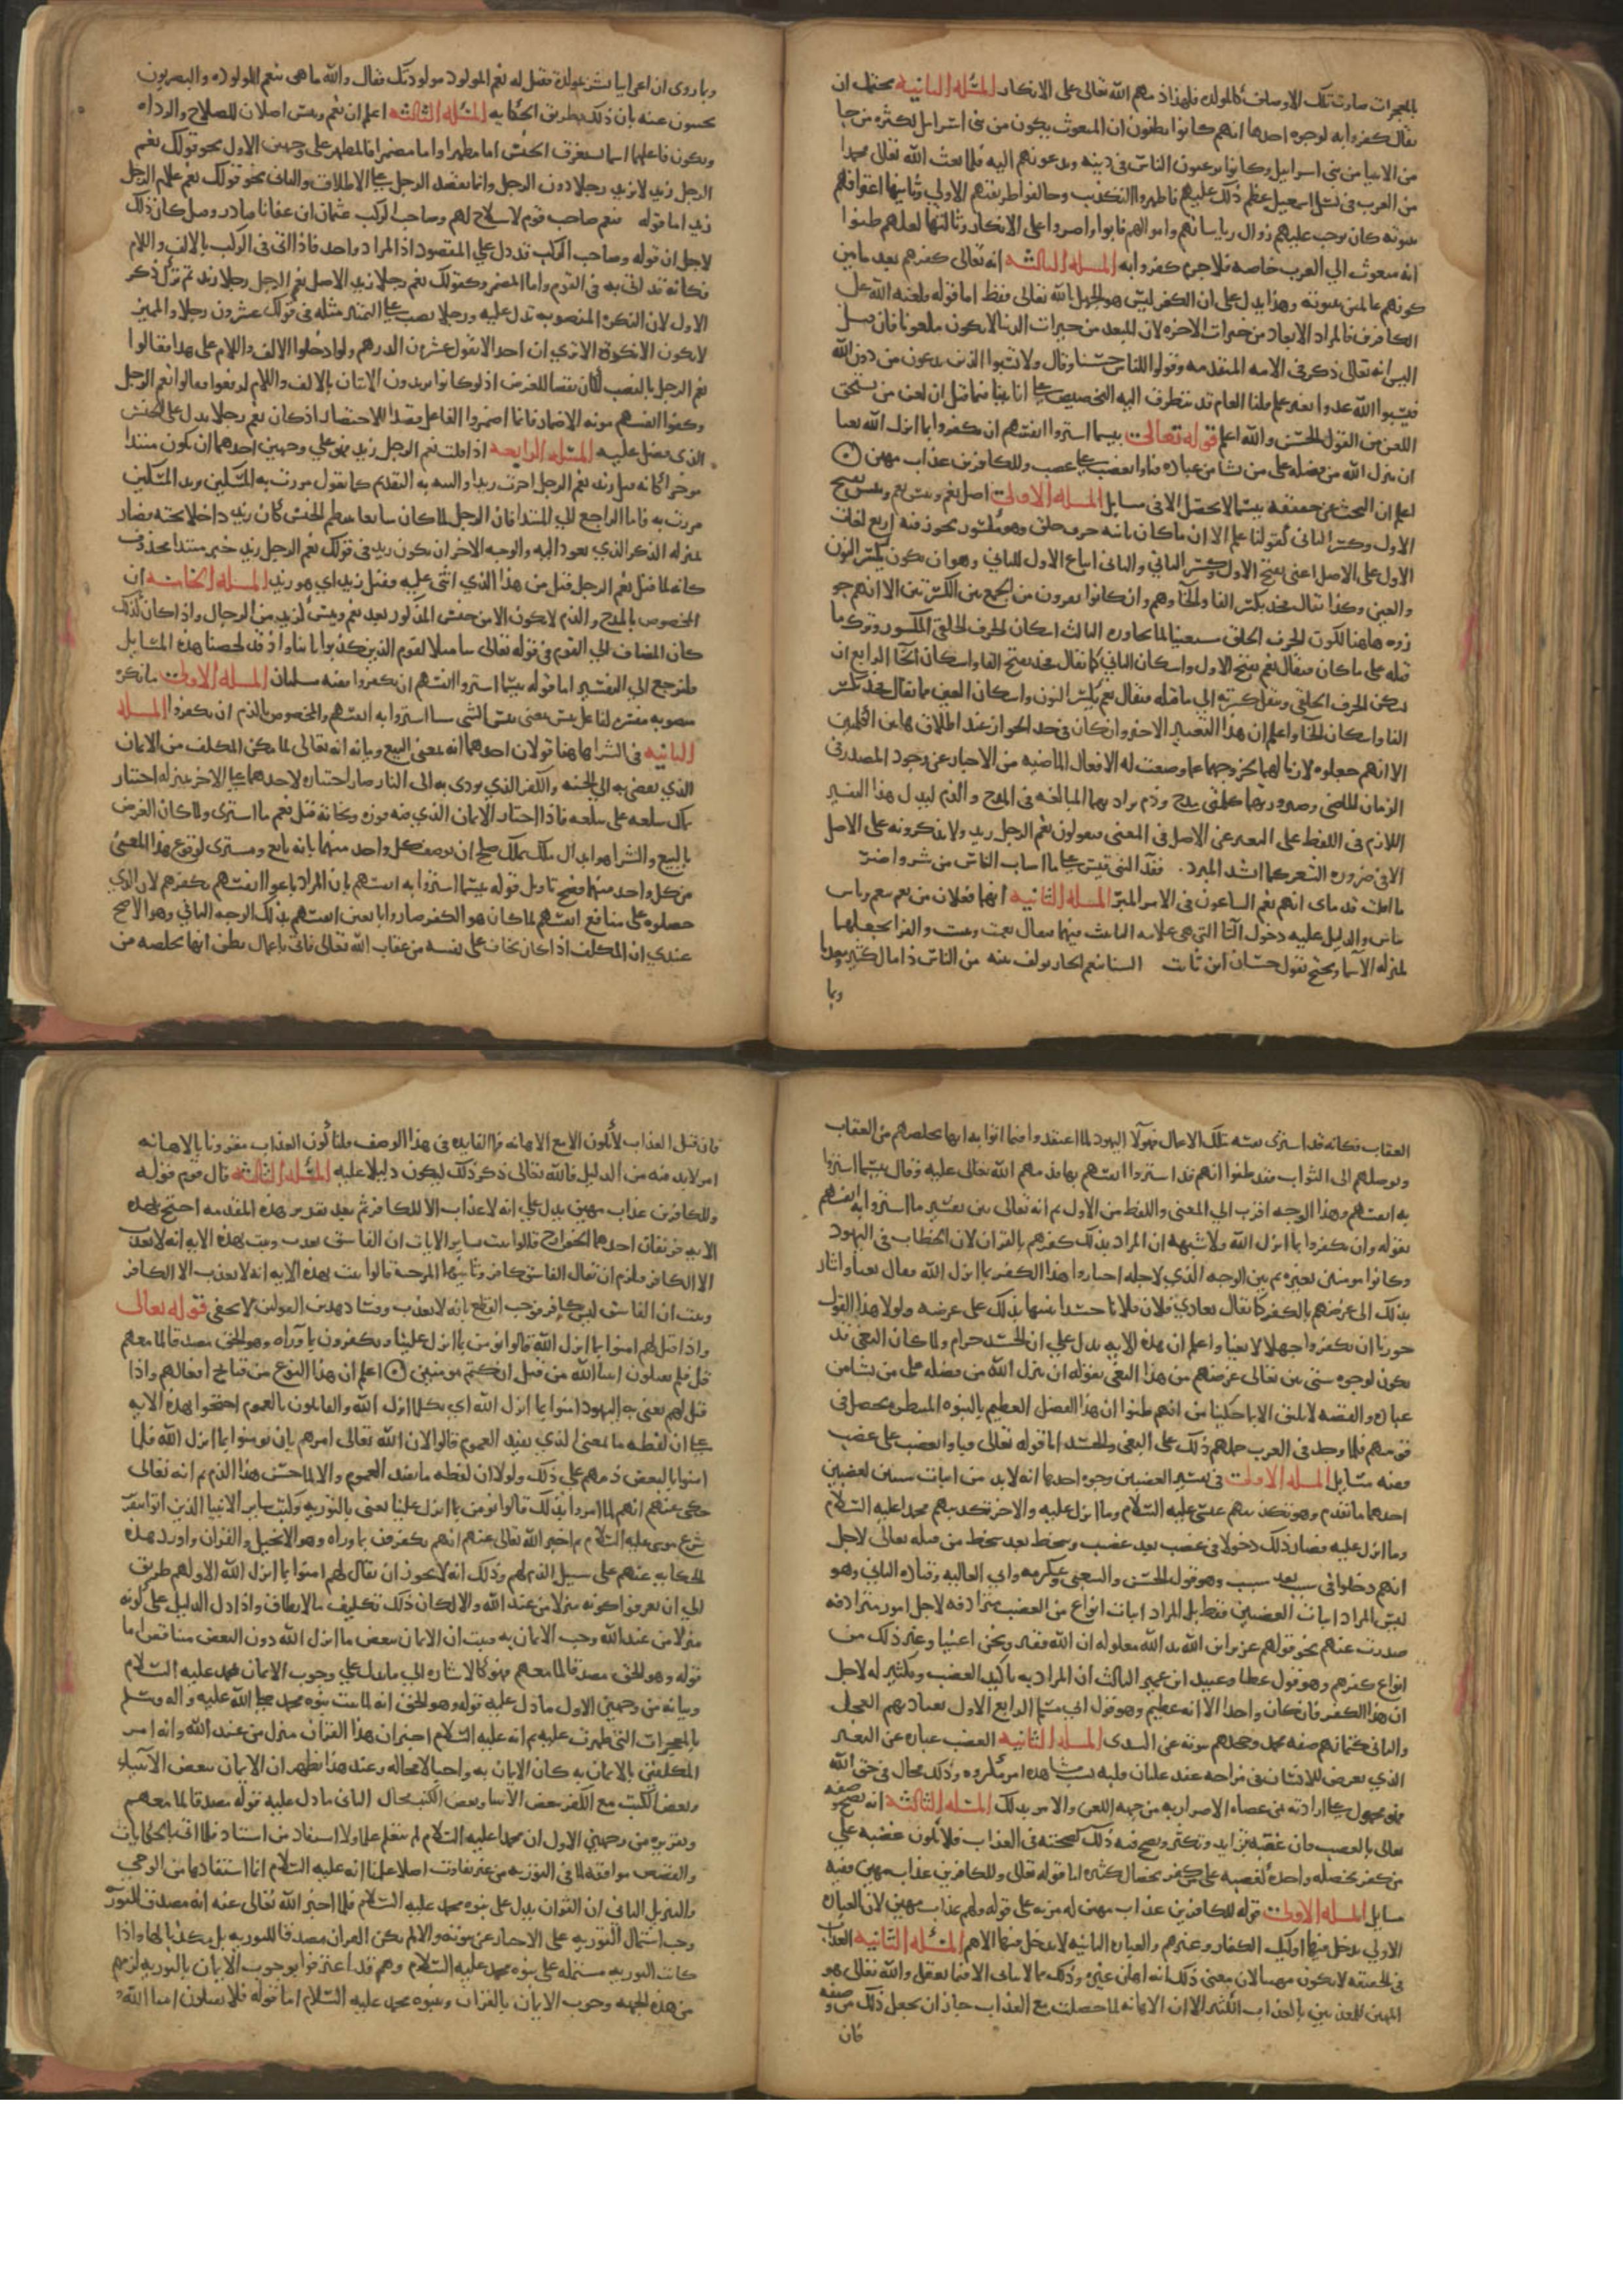 بالمعجزات صارت تلك الاوصاف كالمولده فلهذا ذمهم الله تعالى على الانكار المسئلة الثانيه يحتمل ان
يقال كفروا به لوجوه احدها انهم كانوا يظنون ان المبعوث يكون من بني اسرايل لكثرة من جا
من الانبيا من بني اسرايل وكانوا يرغبون الناس في دينه ويدعونهم اليه فلما بعث الله تعالى محمدا
من العرب من نسل اسمعيل عظم ذلك عليهم فاظهروا التكذيب وخالفوا طريقتهم الاولي وثانيها اعترافهم
بنبوته كان يوجب عليهم زوال رياساتهم واموالهم فابوا واصروا على الانكار وثالثها لعلهم ظنوا
انه مبعوث الي العرب خاصه فلا جرم كفروا به المسله الثالثه انه تعالى كفرهم بعد ما بين
كونهم عالمين بنبوته وهذا يدل على ان الكفر ليس هو الجهل بالله تعالى فقط اما قوله فلعنه الله على
الكافرين فالمراد الابعاد من خيرات الاخره لان المبعد من خيرات الدنيا لا يكون ملعونا فان قيل
اليس انه تعالى ذكر في الايه المتقدمه وقولوا للناس حسنا وقال ولا تسبوا الذين يدعون من دون الله
فيسبوا الله عدوا بغير علم قلنا العام قد يتطرق اليه التخصيص على انا بينا فيما قبل ان لعن من يستحق
اللعن من القول الحسن والله اعلم قوله تعالى بيسما اشتروا انفسهم ان يكفروا بما انزل الله بغيا
ان ينزل الله من فضله على من يشا من عباده فباوا بغضب على غضب وللكافرين عذاب مهين
اعلم ان البحث عن حقيقه بيسما لا يحصل الا في مسايل المسله الاولى اصل نعم وبيس نعم وبيس بفتح
الاول وكسر الثاني كقولنا علم الا ان ما كان ثانيه حرف حلق وهو مكسور يجوز فيه اربع لغات
الاول على الاصل اعني بفتح الاول وكسر الثاني والثاني اتباع الاول للثاني وهو ان يكون بكسر النون
والعين وكذا يقال فخذ بكسر الفا والخا وهم وان كانوا يفرون من الجمع بين الكسرتين الا انهم جو
زوه هاهنا لكون الحرف الحلقي مستتبعا لما يجاوره الثالث اسكان الحرف الحلقي المكسور وترك ما
قبله على ما كان فيقال نعم بفتح الاول واسكان الثاني كما يقال فخذ بفتح الفا واسكان الخا الرابع ان
يسكن الحرف الحلقي وينقل كسرته الي ما قبله فيقال نعم بكسر النون واسكان العين كما يقال فخذ بكسر
الفا واسكان الخا واعلم ان هذا التغيير الاخير وان كان في حد الجواز عند اطلاق هاتين الكلمتين
الا انهم جعلوه لازما لهما لخروجهما عما وضعت له الافعال الماضيه من الاخبار عن وجود المصدر في
الزمان الماضي وصيرورتهما كلمتي مدح وذم يراد بهما المبالغه في المدح والذم ليدل هذا التغيير
اللازم في اللفظ على التغير عن الاصل في المعني فيقولون نعم الرجل زيد ولا يذكرونه على الاصل
الا في ضروره الشعر كما انشد المبرد ففدا لبني قيس على ما اصاب الناس من شر وضر
ما اقلت قدماي انهم نعم الساعون في الامر المبر المسله الثانيه انهما فعلان من نعم ينعم وباس
يباس والدليل عليه دخول التا التي هي علامه التانيث فيهما فيقال نعمت وبيست والفرا يجعلهما
بمنزله الاسما ويحتج بقول حسان ابن ثابت السنا نعم الجار يولف بيته من الناس ذا مال كثير ومعدما
وبما
وبما روي ان اعرابيا بشر بمولوده فقيل له نعم المولود مولودتك فقال والله ما هي بنعم المولوده والبصريون
يجيبون عنه بان ذلك بطريق الحكايه المسئله الثالثه اعلم ان نعم وبيس اصلان للصلاح والرداه
ويكون فاعلهما اسما يستغرق الجنس اما مظهرا واما مضمرا فالمظهر على وجهين الاول نحو قولك نعم
الرجل زيد لا تريد رجلا دون الرجل وانما تقصد الرجل على الاطلاق والثاني نحو قولك نعم غلام الرجل
زيد اما قوله فنعم صاحب قوم لا سلاح لهم وصاحب الركب عثمان ابن عفانا فنادر وقيل كان ذلك
لاجل ان قوله وصاحب الركب قد دل على المقصود اذ المراد واحد فاذا اتي في الركب بالالف واللام
فكانه قد اتى به في القوم واما المضمر فكقولك نعم رجلا زيد الاصل نعم الرجل رجلا زيد ثم ترك ذكر
الاول لان النكره المنصوبه تدل عليه ورجلا نصب على التمييز مثله في قولك عشرون رجلا والمميز
لا يكون الا نكره الا ترى ان احدا لا يقول عشرون الدرهم ولو ادخلوا الالف واللام على هذا فقالوا
نعم الرجل بالنصب لكان نقضا للغرض اذ لو كانوا يريدون الاتيان بالالف واللام لرفعوا وقالوا نعم الرجل
وكفوا انفسهم مونه الاضمار فانما اضمروا الفاعل قصدا للاختصار اذ كان نعم رجلا يدل على الجنس
الذي فضل عليه المسئله الرابعه اذا قلت نعم الرجل زيد فهو علي وجهين احدهما ان يكون مبتدا
موخرا كانه قيل زيد نعم الرجل اخرت زيدا والنيه به التقديم كما تقول مررت به المسكين تريد المسكين
مررت به فاما الراجع الي المبتدا فان الرجل لما كان شايعا ينتظم الجنس كان زيد داخلا تحته فصار
بمنزله الذكر الذي يعود اليه والوجه الاخر ان يكون زيد في قولك نعم الرجل زيد خبر مبتدا محذوف
كانه لما قيل نعم الرجل قيل من هذا الذي اثني عليه فقيل زيد اي هو زيد المسله الخامسه ان
المخصوص بالمدح والذم لا يكون الا من جنس المذكور بعد نعم وبيس كزيد من الرجال واذا كان كذلك
كان المضاف الي القوم في قوله تعالى سا مثلا القوم الذين كذبوا باياتنا واذ قد لخصنا هذه المسايل
فلنرجع الي التفسير اما قوله بيسما اشتروا انفسهم ان يكفروا ففيه مسلتان المسله الاولى ما نكره
منصوبه مفسره لفاعل بيس بمعنى بيس الشي شيا اشتروا به انفسهم والمخصوص بالذم ان يكفروا المسله
الثانيه في الشرا هاهنا قولان احدهما انه بمعني البيع وبيانه انه تعالى لما مكن المكلف من الايمان
الذي يفضي به الي الجنه والكفر الذي يودي به الى النار صار اختياره لاحدهما على الاخر بمنزله اختيار
تملك سلعه على سلعه فاذا اختار الايمان الذي فيه فوزه ونجاته قيل نعم ما اشترى ولما كان الغرض
بالبيع والشرا هو ابدال ملك بملك صلح ان يوصف كل واحد منهما بانه بايع ومشتري لوقوع هذا المعنى
من كل واحد منهما فصح تاويل قوله بيسما اشتروا به انفسهم بان المراد باعوا انفسهم بكفرهم لان الذي
حصلوه على منافع انفسهم لما كان هو الكفر صاروا بايعين انفسهم بذلك الوجه الثاني وهو الاصح
عندي ان المكلف اذا كان يخاف على نفسه من عقاب الله تعالى فاتى باعمال يظن انها تخلصه من
العقاب فكانه قد اشترى نفسه بتلك الاعمال فهولا اليهود لما اعتقدوا فيما اتوا به انها تخلصهم من العقاب
وتوصلهم الى الثواب فقد ظنوا انهم قد اشتروا انفسهم بها فذمهم الله تعالى عليه وقال بيسما اشتروا
به انفسهم وهذا الوجه اقرب الي المعنى واللفظ من الاول ثم انه تعالى بين تفسير ما اشتروا به انفسهم
بقوله وان يكفروا بما انزل الله ولا شبهه ان المراد بذلك كفرهم بالقران لان الخطاب في اليهود
وكانوا مومنين بغيره ثم بين الوجه الذي لاجله اختاروا هذا الكفر بما انزل الله فقال بغيا واشار
بذلك الى غرضهم بالكفر كما يقال يعادي فلان فلانا حسدا تنبيها بذلك على غرضه ولولا هذا القول
جوزنا ان يكفروا جهلا لا بغيا واعلم ان هذه الايه تدل علي ان الحسد حرام ولما كان البغي قد
يكون لوجوه شتي بين تعالى غرضهم من هذا البغي بقوله ان ينزل الله من فضله على من يشا من
عباده والقصه لا تليق الا بما حكينا من انهم ظنوا ان هذا الفضل العظيم بالنبوه المنتظره يحصل في
قومهم فلما وجدوه في العرب حملهم ذلك على البغي والحسد اما قوله تعالى فباوا بغضب على غضب
ففيه مسايل المسله الاولى في تفسير الغضبين وجوه احدها انه لابد من اثبات سببين لغضبين
احدهما ما تقدم وهو تكذيبهم عيسى عليه السلام وما انزل عليه والاخر تكذيبهم محمدا عليه السلام
وما انزل عليه فصار ذلك دخولا في غضب بعد غضب وسخط بعد سخط من قبله تعالى لاجل
انهم دخلوا في سبب بعد سبب وهو قول الحسن والشعبي وعكرمه وابي العاليه وقتاده الثاني وهو
ليس المراد اثبات الغضبين فقط بل المراد اثبات انواع من الغضب مترادفه لاجل امور مترادفه
صدرت عنهم نحو قولهم عزير ابن الله يد الله مغلوله ان الله فقير ونحن اغنيا وغير ذلك من
انواع كفرهم وهو قول عطا وعبيد ابن عمير الثالث ان المراد به تاكيد الغضب وتكثيره لاجل
ان هذا الكفر فان كان واحدا الا انه عظيم وهو قول ابي مسلم الرابع الاول بعبادتهم العجل
والثاني بكتمانهم صفه محمد وجحدهم نبوته عن السدي المسله الثانيه الغضب عباره عن التغير
الذي يعرض للانسان في مزاجه عند غليان دم قلبه بسبب مشاهده امر مكروه وذلك محال في حق الله
فهو محمول على ارادته لمن عصاه الاضرار به من جهه اللعن والامر بذلك المسله الثالثه انه يصح وصفه
تعالى بالغضب وان غضبه يتزايد ويكثر ويصح فيه ذلك كصحته في العذاب فلا يكون غضبه علي
من كفر بخصله واحده كغضبه على من كفر بخصال كثيره اما قوله تعالى وللكافرين عذاب مهين ففيه
مسايل المسله الاولى قوله للكافرين عذاب مهين له مزيه على قوله ولهم عذاب مهين لان العباره
الاولي يدخل فيها اوليك الكفار وغيرهم والعباره الثانيه لا يدخل فيها الا هم المسئله الثانيه العذاب
في الحقيقه لا يكون مهينا لان معنى ذلك انه اهان غيره وذلك مما لا يتاتى الا فيما يعقل والله تعالى هو
المهين للمعذبين بالعذاب الكثير الا ان الاهانه لما حصلت مع العذاب جاز ان يجعل ذلك من وصفه
فان
فان قيل العذاب لا يكون الا مع الاهانه فما الفايده في هذا الوصف قلنا كون العذاب مقرونا بالاهانه
امر لابد فيه من الدليل فالله تعالى ذكر ذلك ليكون دليلا عليه المسئله الثالثه قال قوم قوله
وللكافرين عذاب مهين يدل على انه لا عذاب الا للكافر ثم بعد تقرير هذه المقدمه احتج بهذه
الايه فريقان احدهما الخوارج قالوا ثبت بساير الايات ان الفاسق يعذب وثبت بهذه الايه انه لا يعذب
الا الكافر فلزم ان يقال الفاسق كافر وثانيها المرجية قالوا ثبت بهذه الايه انه لا يعذب الا الكافر
وثبت ان الفاسق ليس بكافر فوجب القطع بانه لا يعذب وفساد هذين القولين لا يخفى قوله تعالى
واذا قيل لهم امنوا بما انزل الله قالوا نومن بما انزل علينا ويكفرون بما وراه وهو الحق مصدقا لما معهم
قل فلم تقتلون انبيا الله من قبل ان كنتم مومنين اعلم ان هذا النوع من قبايح افعالهم واذا
قيل لهم يعني به اليهود امنوا بما انزل الله اي بكل ما انزل الله والقايلون بالعموم احتجوا بهذه الايه
على ان لفظه ما بمعنى الذي تفيد العموم قالوا لان الله تعالى امرهم بان يومنوا بما انزل الله فلما
امنوا بالبعض ذمهم على ذلك ولولا ان لفظه ما تفيد العموم والا لما حسن هذا الذم ثم انه تعالى
حكى عنهم انهم لما امروا بذلك قالوا نومن بما انزل علينا يعني بالتوريه وكتب ساير الانبيا الذين اتوا بتقرير
شرع موسى عليه السلام ثم اخبر الله تعالى عنهم انهم يكفرون بما وراه وهو الانجيل والقران واورد هذه
الحكايه عنهم على سبيل الذم لهم وذلك انه لا يجوز ان يقال لهم امنوا بما انزل الله الا ولهم طريق
الي ان يعرفوا كونه منزلا من عند الله والا لكان ذلك تكليف ما لا يطاق واذا دل الدليل على كونه
منزلا من عند الله وجب الايمان به فثبت ان الايمان ببعض ما انزل الله دون البعض مناقض اما
قوله وهو الحق مصدقا لما معهم فهو كالاشاره الي ما يدل علي وجوب الايمان بمحمد عليه السلام
وبيانه من وجهين الاول ما دل عليه قوله وهو الحق انه لما ثبت نبوه محمد صلى الله عليه واله وسلم
بالمعجزات التي ظهرت عليه ثم انه عليه السلام اخبر ان هذا القران منزل من عند الله وانه امر
المكلفين بالايمان به كان الايمان به واجبا لا محاله وعند هذا يظهر ان الايمان ببعض الانبياء
وبعض الكتب مع الكفر ببعض الانبيا وبعض الكتب محال الثاني ما دل عليه قوله مصدقا لما معهم
وتقريره من وجهين الاول ان محمدا عليه السلام لم يتعلم علما ولا استفاد من استاذ فلما اتى بالحكايات
والقصص موافقه لما في التوريه من غير تفاوت اصلا علمنا انه عليه السلام انما استفادها من الوحي
والتنزيل الثاني ان القران يدل على نبوه محمد عليه السلام فلما اخبر الله تعالى عنه انه مصدق للتوريه
وجب اشتمال التوريه على الاخبار عن نبوته والا لم يكن القران مصدقا للتوريه بل مكذبا لها واذا
كانت التوريه مشتمله على نبوه محمد عليه السلام وهم قد اعترفوا بوجوب الايمان بالتوريه لزمهم
من هذه الجهه وجوب الايمان بالقران وبنبوه محمد عليه السلام اما قوله فلم تقتلون انبيا الله